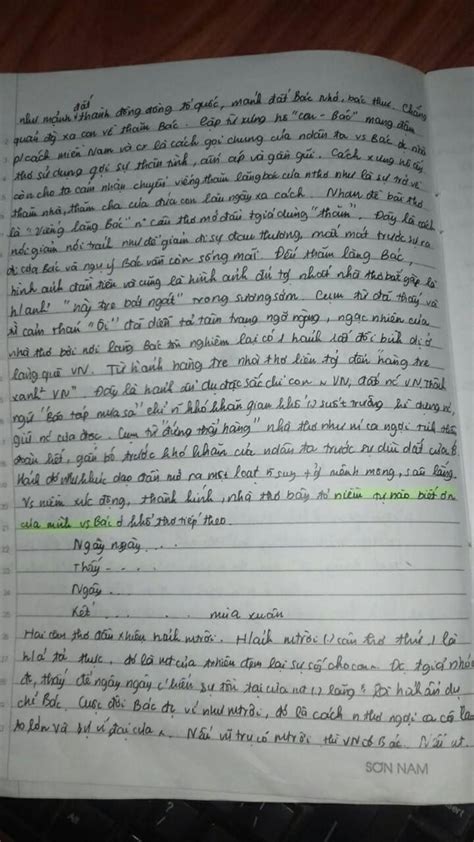 đất
như mảnh thành đồng đông tổ quốc, mảnh đất Bác nhớ, bác thuc. Chẳng
quản độ xa con về thăm Bác. Cặp từ xưng hô "con - Bác" mang đậm
p/cách miền Nam và cx là cách gọi chung của ndân ta vs Bác đc nhà
thơ sử dụng gợi sự thân tình, ấm áp và gần gũi. Cách xưng hô ấy
còn cho ta cảm nhận chuyến viếng thăm lăng bác của nthơ như là sự trở về
thăm nhà, thăm cha của đứa con lâu ngày xa cách. Nhan đề bài thơ
là "viếng lăng Bác" n` câu thơ mở đầu tgiả dùng "thăm". Đây là cách
nói giảm nói tránh như để giảm đi sự đau thương, mất mát trước sự ra
đi của Bác và ngụ ý Bác vẫn còn sống mãi. Đến thăm lăng Bác,
hình ảnh đầu tiên và cũng là hình ảnh đủ tự nhất nhà thơ bắt gặp là
h/ảnh "hàng tre bát ngát" trong sương sớm. Cụm từ đã thấy và
từ cảm thán "Ôi" đã diễn tả tâm trạng ngỡ ngàng, ngạc nhiên của
nhà thơ bởi nơi lăng Bác tôn nghiêm lại có 1 hảnh rất đỗi bình dị ở
làng quê VN. Từ hảnh hàng tre nhà thơ liên tg đến "hàng tre
xanh VN". Đây là hảnh ẩn dụ đặc sắc chỉ con ng VN, đất nc VN. Thành
ngữ "Bão táp mưa sa" chỉ n~ khó khăn gian khổ (.) suốt trường kì dựng nc,
giữ nc của dtộc. Cụm từ "đứng thẳng hàng" nhà thơ như ca ngợi tinh thần
đoàn kết, gắn bó trước khó khăn của ndân ta trước sự dìu dắt của B.
Hảnh đó như khúc dạo đầu mở ra một loạt n~ suy tg mênh mong, sâu lắng.
Vs niềm xúc động, thành kính, nhà thơ bày tỏ niềm tự hào biết ơn
của mình vs Bác ở khổ thơ tiếp theo.
Ngày ngày . . .
Thấy . . . .
Ngày . . . .
Kết . . . . mùa xuân
Hai câu thơ đầu xhiện hảnh mtrời. Hảnh mtrời (.) câu thơ thứ 1 là
h/á tả thực, đó là mt của tnhiên đem lại sự sống cho con ng. Đc tgiả nhân
hóa, thấy để ngày ngày c/kiến sự tồn tại của mt (.) lăng" là há ẩn dụ
chỉ Bác. Cuộc đời Bác đc ví như mtrời, đó là cách n thơ ngợi ca công lao
to lớn và sự vĩ đại của ng. Nếu vũ trụ có mtrời thì VN có Bác. Nếu mt
SƠN NAM